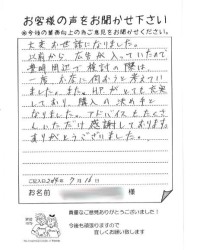 お客様の声をお聞かせ下さい
※今後の業務向上の為ご意見をお聞かせ下さい
大変お世話になりました。
以前から広告が入っていたので
豊明周辺で検討の際は、
一度お店に伺おうと考えてい
ました。また、HPがとても充実
しており、購入の決め手と
なりました。アドバイスもたくさ
んいただけ感謝しております。
ありがとうございました。
ご記入日 7月16日
お名前 様
貴重なご意見ありがとうございました!
今後も頑張りますので
宜しくお願い致します